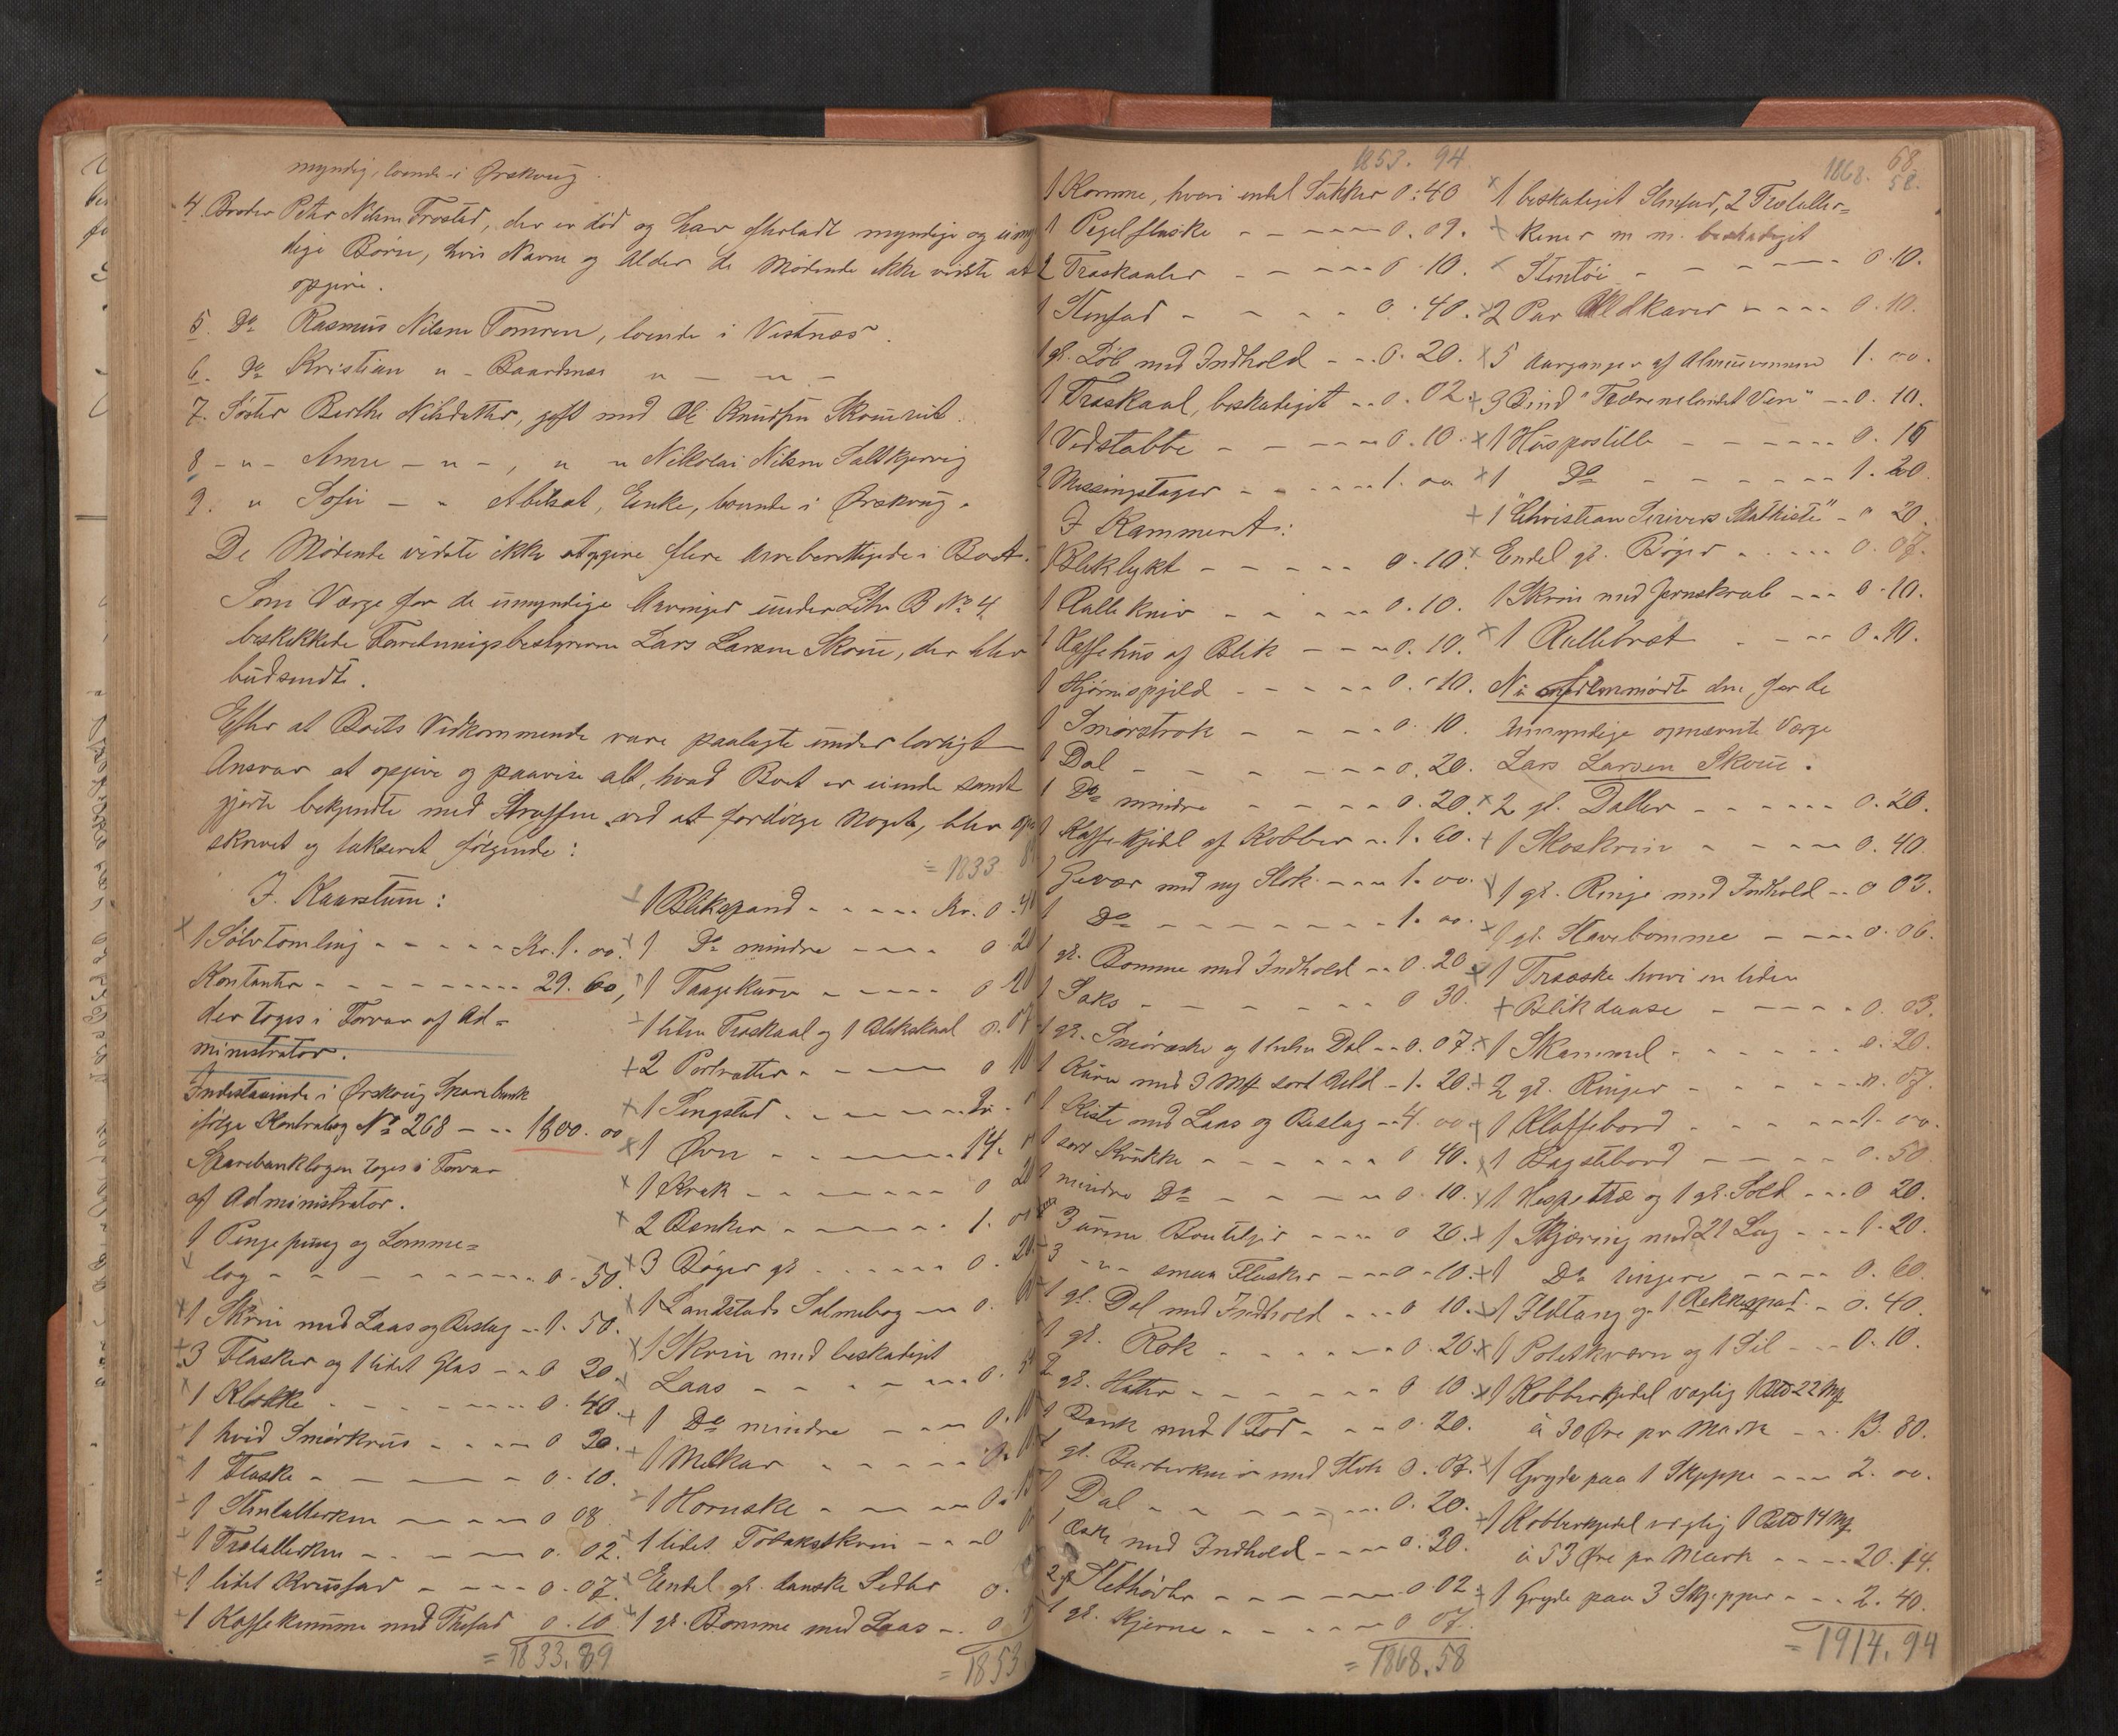 myndig, boende i Ørskoug.
4 Broder Peter Nilsen Frostad, der er død og har efterladt myndige og umyn
dige Børn, hvis Navne og Alder de Mødende ikke vidste at
opgive.
5. Do Rasmus Nilsen Tomren, boende i Vestnæs.
6. Do Kristian " - Baardsnæs " — " —
7. Søster Berthe Nilsdatter, gift med Ole Knudsen Skourset.
8 - " - Anne - " - , " " Nikolai Nilsen Saltkjervig
9. " Sofie — " Abelset, Enke, boende i Ørskoug.
De Mødende vidste ikke at opgive flere Arveberettigede i Boet.
Som Værge for de umyndige Arvinger under Litr B No 4
beskikkede Forretningsbestyreren Lars Larsen Skoue, der blev
budsendt.
Efter at Boets Vedkommende vare paalagte under lovligt
Ansvar at opgive og paavise alt, hvad Boet er eiende samt
gjorte bekjendte med Straffen ved at fordølge Noget, blev op
skrevet og takseret følgende:
I. Kaarstuen:
1 Sølvtomling - - - - Kr. 1. 00.
Kontanter - - - - - 29. 60,
der toges i Forvar af Ad=
ministrator.
Indestaaende i Ørskoug Sparebank
ifølge Kontrabog No 268 - - - 1800. 00
Sparebankbogen toges i Forvar
af Administrator.
1 Pengepung og Lomme=
bog - - - - - 0. 50.
1 Skrin med Laas og Beslag - - 1. 50.
3 Flasker og 1 lidet Glas - - 0 20.
1 Klokke - - - - 0. 40.
1 hvid Smørkrus - - - - 0 20.
1 Flaske - - - - 0. 10.
1 Stentallerken - - - 0 08
1 Trætallerken - - - - 0. 02.
1 lidet Krusfad - - - - 0. 07.
1 Kaffekumme med Thefad 0. 10
= 1833. 89
= 1833. 8
1 Blikspand - - - - Kr. 0. 40
1 Do mindre - - - - 0. 20
1 Taagekurv - - - - 0 10
1 liden Træskaal og 1 Blikskaal 0. 07
2 Portrætter - - - - 0 10
1 Sengsted - - - -
1 Ovn - - - - 14.
1 Krak - - - - 0 20
2 Bænker - - - - 1. 00
3 Bøger gl - - - - 0. 20
1 Landstads Salmebog - - 0.
1 Skrin med beskadiget
Laas - - - - 0.
1 Do mindre - - - 0.
1 Melkar - - - - 0.
1 Hornske - - - 0.
1 lidet Tobaksskrin - - - 0
Endel gl. danske Sedler 0.
1 gl. Bomme med Laas - - 0
= 1853
1853. 94
1 Komme, hvori endel Sukker 0. 40
1 Pegelflaske - - - - 0. 09.
2 Træskaaler - - - - 0. 10.
1 Stenfad - - - - 0. 40.
1 gl. Løb med Indhold - - 0. 20.
1 Træskaal, beskadiget - - 0. 02
1 Vedstabbe - - - - 0. 10.
2 Messingstager - - - - 1. 00
I Kammeret:
1 Bliklykt - - - - 0. 10.
1 Rallekniv - - - - 0. 10.
1 Kaffehus af Blik - - - 0. 10.
1 Hjørnespjeld - - - - 0. 10.
1 Smørstrok - - - - 0. 10.
1 Dal - - - - 0. 20.
1 Do mindre - - - - 0. 20.
1 Kaffekjedel af Kobber - - 1. 60.
1 Gevær med ny Stok - - - 1. 00.
1 Do - - - - 1. 00.
1 gl. Bomme med Indhold - - 0. 20
1 Saks - - - - 0 30.
1 gl. Smøræske og 1 liden Dal - - 0. 07.
1 Kurv med 3 Mk sort Uld - 1. 20.
1 Kiste med Laas og Beslag - - 4. 00
1 sort Krukke - - - - 0 40.
1 mindre Do - - - - 0. 10.
3 urene Bouteljer - - - - 0 20.
3 - " - smaa Flasker - - - 0. 10.
1 gl. Dal med Indhold - - - 0 10.
1 gl. Rok - - - - 0. 20
2 gl. Hatter - - - - 0 10.
1 Benk med 1 Fod - - - 0. 20.
1 gl. Barberkniv med Stok 0. 07.
1 Dal - - - - 0. 20.
1 Æske med Indhold - - - 0. 20.
2 gl Slethøvler - - - - 0. 02
1 gl. Kjerne - - - - 0 07.
= 1868. 58
68
1868. 58.
1 beskadiget Stenfad, 2 Trætaller=
kener m m. beskadiget
Stentøi - - - - 0. 10.
2 Par Uldkarder - - - - 0. 10.
5 Aargange af Almuevennen 1. 00.
3 Bind "Fædrenelandets Ven" - - 0. 10.
1 Huspostille - - - - 0. 10
1 Do - - - - 1. 20.
1 "Christian Scrivers Skatkiste" - 0 20.
Endel gl. Bøger - - - - 0. 07.
1 Skrin med Jernskrab - - - 0. 10.
1 Rullebræt - - - 0. 10.
Nu fremmødte den for de
Umyndige opnævnte Værge
Lars Larsen Skoue.
2 gl. Daller - - - - 0. 20.
1 Skoskrin - - - - 0. 40.
1 gl. Ringe med Indhold - - 0 03.
1 gl. Havrebomme - - - 0. 06.
1 Træøske hvori en liden
Blikdaase - - - - 0. 03.
1 Skammel - - - - 0. 20.
2 gl. Ringer - - - - 0. 07.
1 Klaffebord - - - - 1. 00.
1 Bagstebord - - - 0. 50
1 Hespetræ og 1 gl. Sold - - - 0 20.
1 Skjæring med 21 Lag - - - 1. 20.
1 Do ringere - - - - 0. 60.
1 Ildtang og 1 Rækkespad - 0. 40.
1 Potetkværn og 1 Sil - - - 0. 10.
1 Kobberkjedel vægtig 1 Bd 22 Mk
à 30 Øre pr Mark - - - 13. 80.
1 Gryde paa 1 Skjeppe - - - 2. 00.
1 Kobberkjedel vægtig 1 Bd 14 Mk
à 53 Øre pr Mark - - - - 20. 14.
1 Gryde paa 3 Skjepper - - - 2. 40.
= 1914. 94